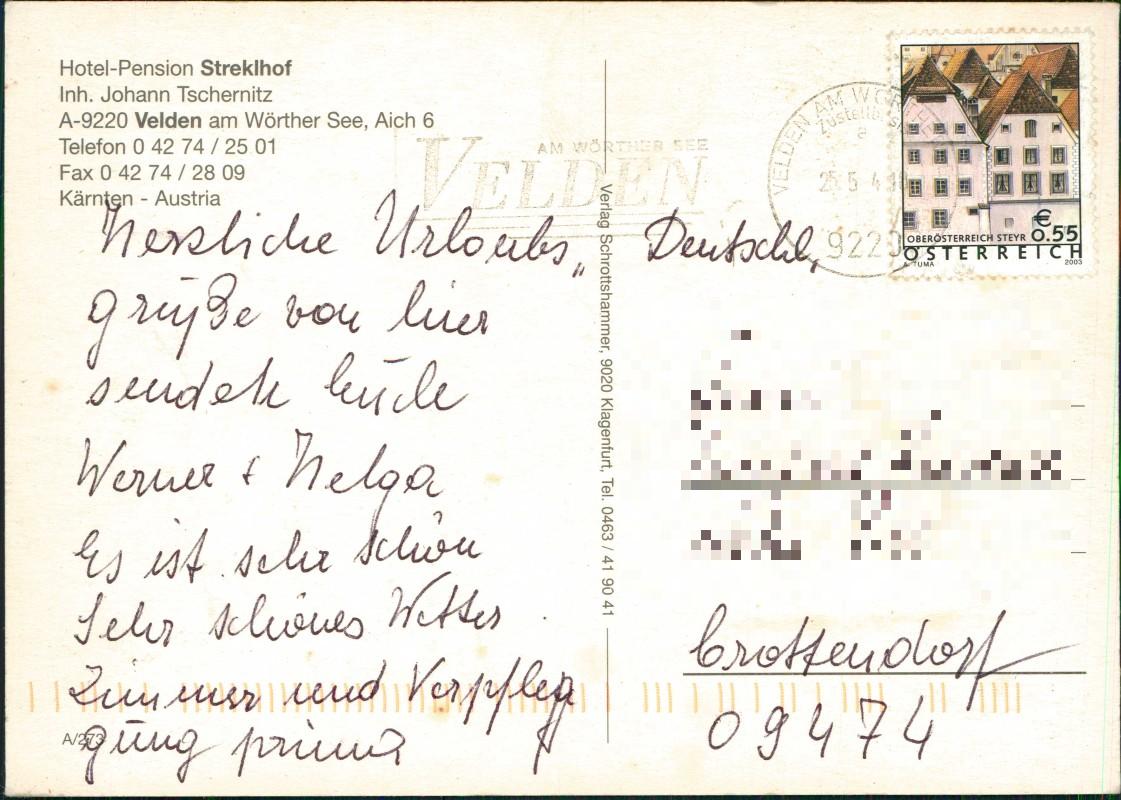 Hotel-Pension Streklhof
Inh. Johann Tschernitz
A-9220 Velden am Wörther See, Aich 6
Telefon 0 42 74 / 25 01
Fax 0 42 74 / 28 09
Kärnten - Austria
AM WÖRTHER SEE
VELDEN
VELDEN AM WÖRTHER
Zustellbasis
a
25.5.4
9220
OBERÖSTERREICH STEYR
€ 0.55
ÖSTERREICH
A. TUMA
2003
Herzliche Urlaubs„
grüße von hier
sendet Euch
Werner + Helga
Es ist sehr schön
Sehr schönes Wetter
Zimmer und Verpfleg
gung prima
A/273
Verlag Schrottshammer, 9020 Klagenfurt, Tel. 0463 / 41 90 41
Deutschl,
Crottendorf
09474